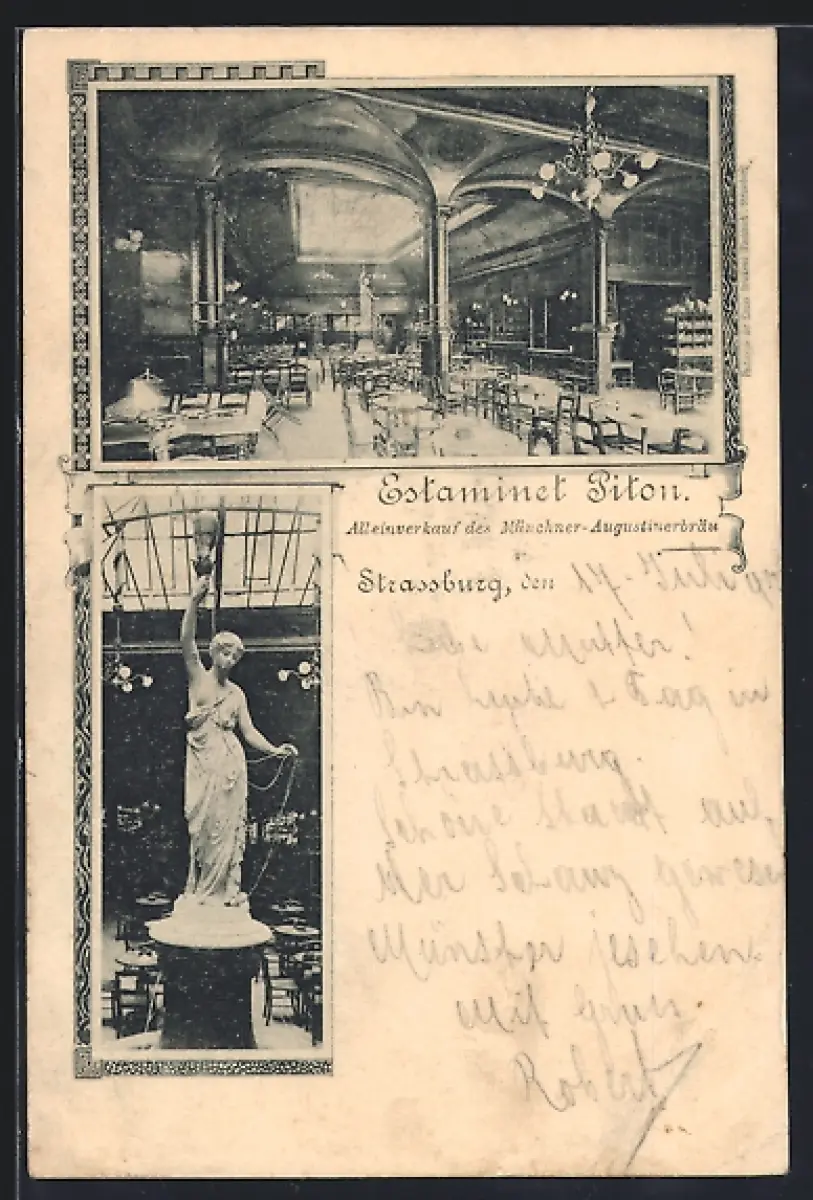 Estaminet Piton.
Alleinverkauf des Münchner-Augustinerbräu
Strassburg, den 17. Juli
Mutter!
Bin heute 1 Tag in
Strassburg.
Schöne Stadt auf
der Schanz gewesen
Münster jesehen.
Mit Gruss.
Robert